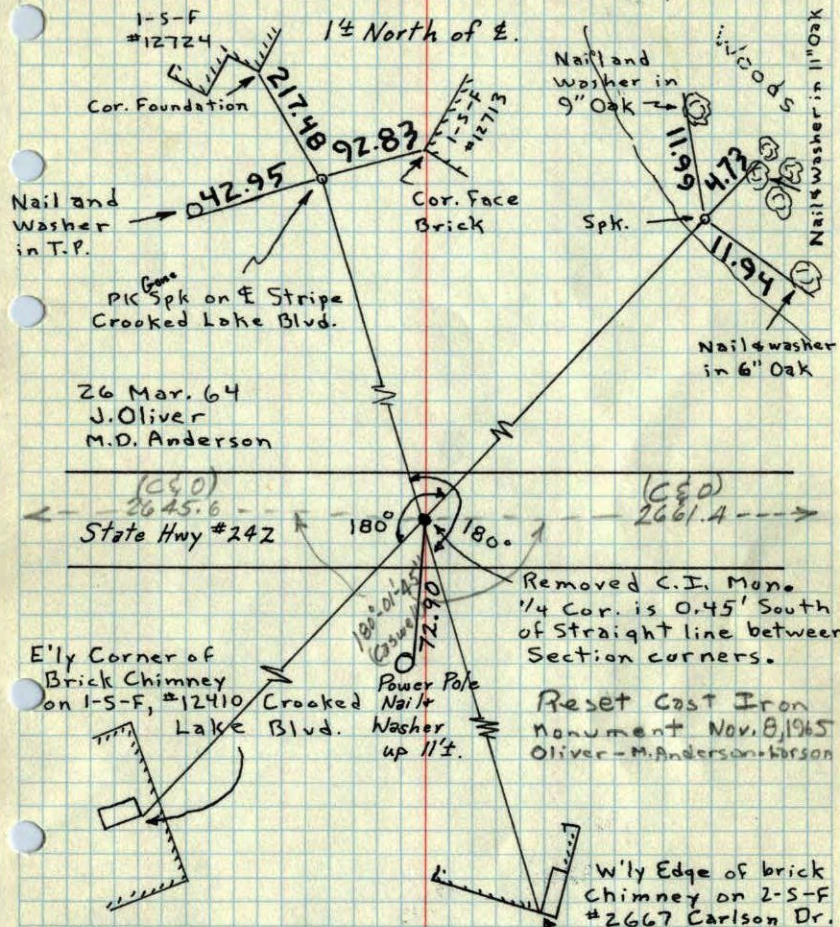 1-S-F
#12724
1'± North of ℄.
Cor. Foundation
217.48
92.83
1-S-F
#12713
Cor. Face
Brick
42.95
Nail and
Washer
in T.P.
Gone
PK Spk on ℄ Stripe
Crooked Lake Blvd.
Nail and
Washer in
9" Oak
Woods
Nail & Washer in 11" Oak
11.99
4.73
Spk.
11.94
Nail & washer
in 6" Oak
26 Mar. 64
J. Oliver
M.D. Anderson
(C & O)
2645.6
(C & O)
2661.4
State Hwy #242
180°
180°
180°-01'-45"
(Caswell)
72.90
Removed C.I. Mon.
1/4 Cor. is 0.45' South
of Straight line between
Section corners.
E'ly Corner of
Brick Chimney
on 1-S-F, #12410
Crooked
Lake Blvd.
Power Pole
Nail &
Washer
up 11'±.
Reset Cast Iron
monument Nov. 8, 1965
Oliver - M. Anderson - Larson
W'ly Edge of brick
Chimney on 2-S-F
#2667 Carlson Dr.